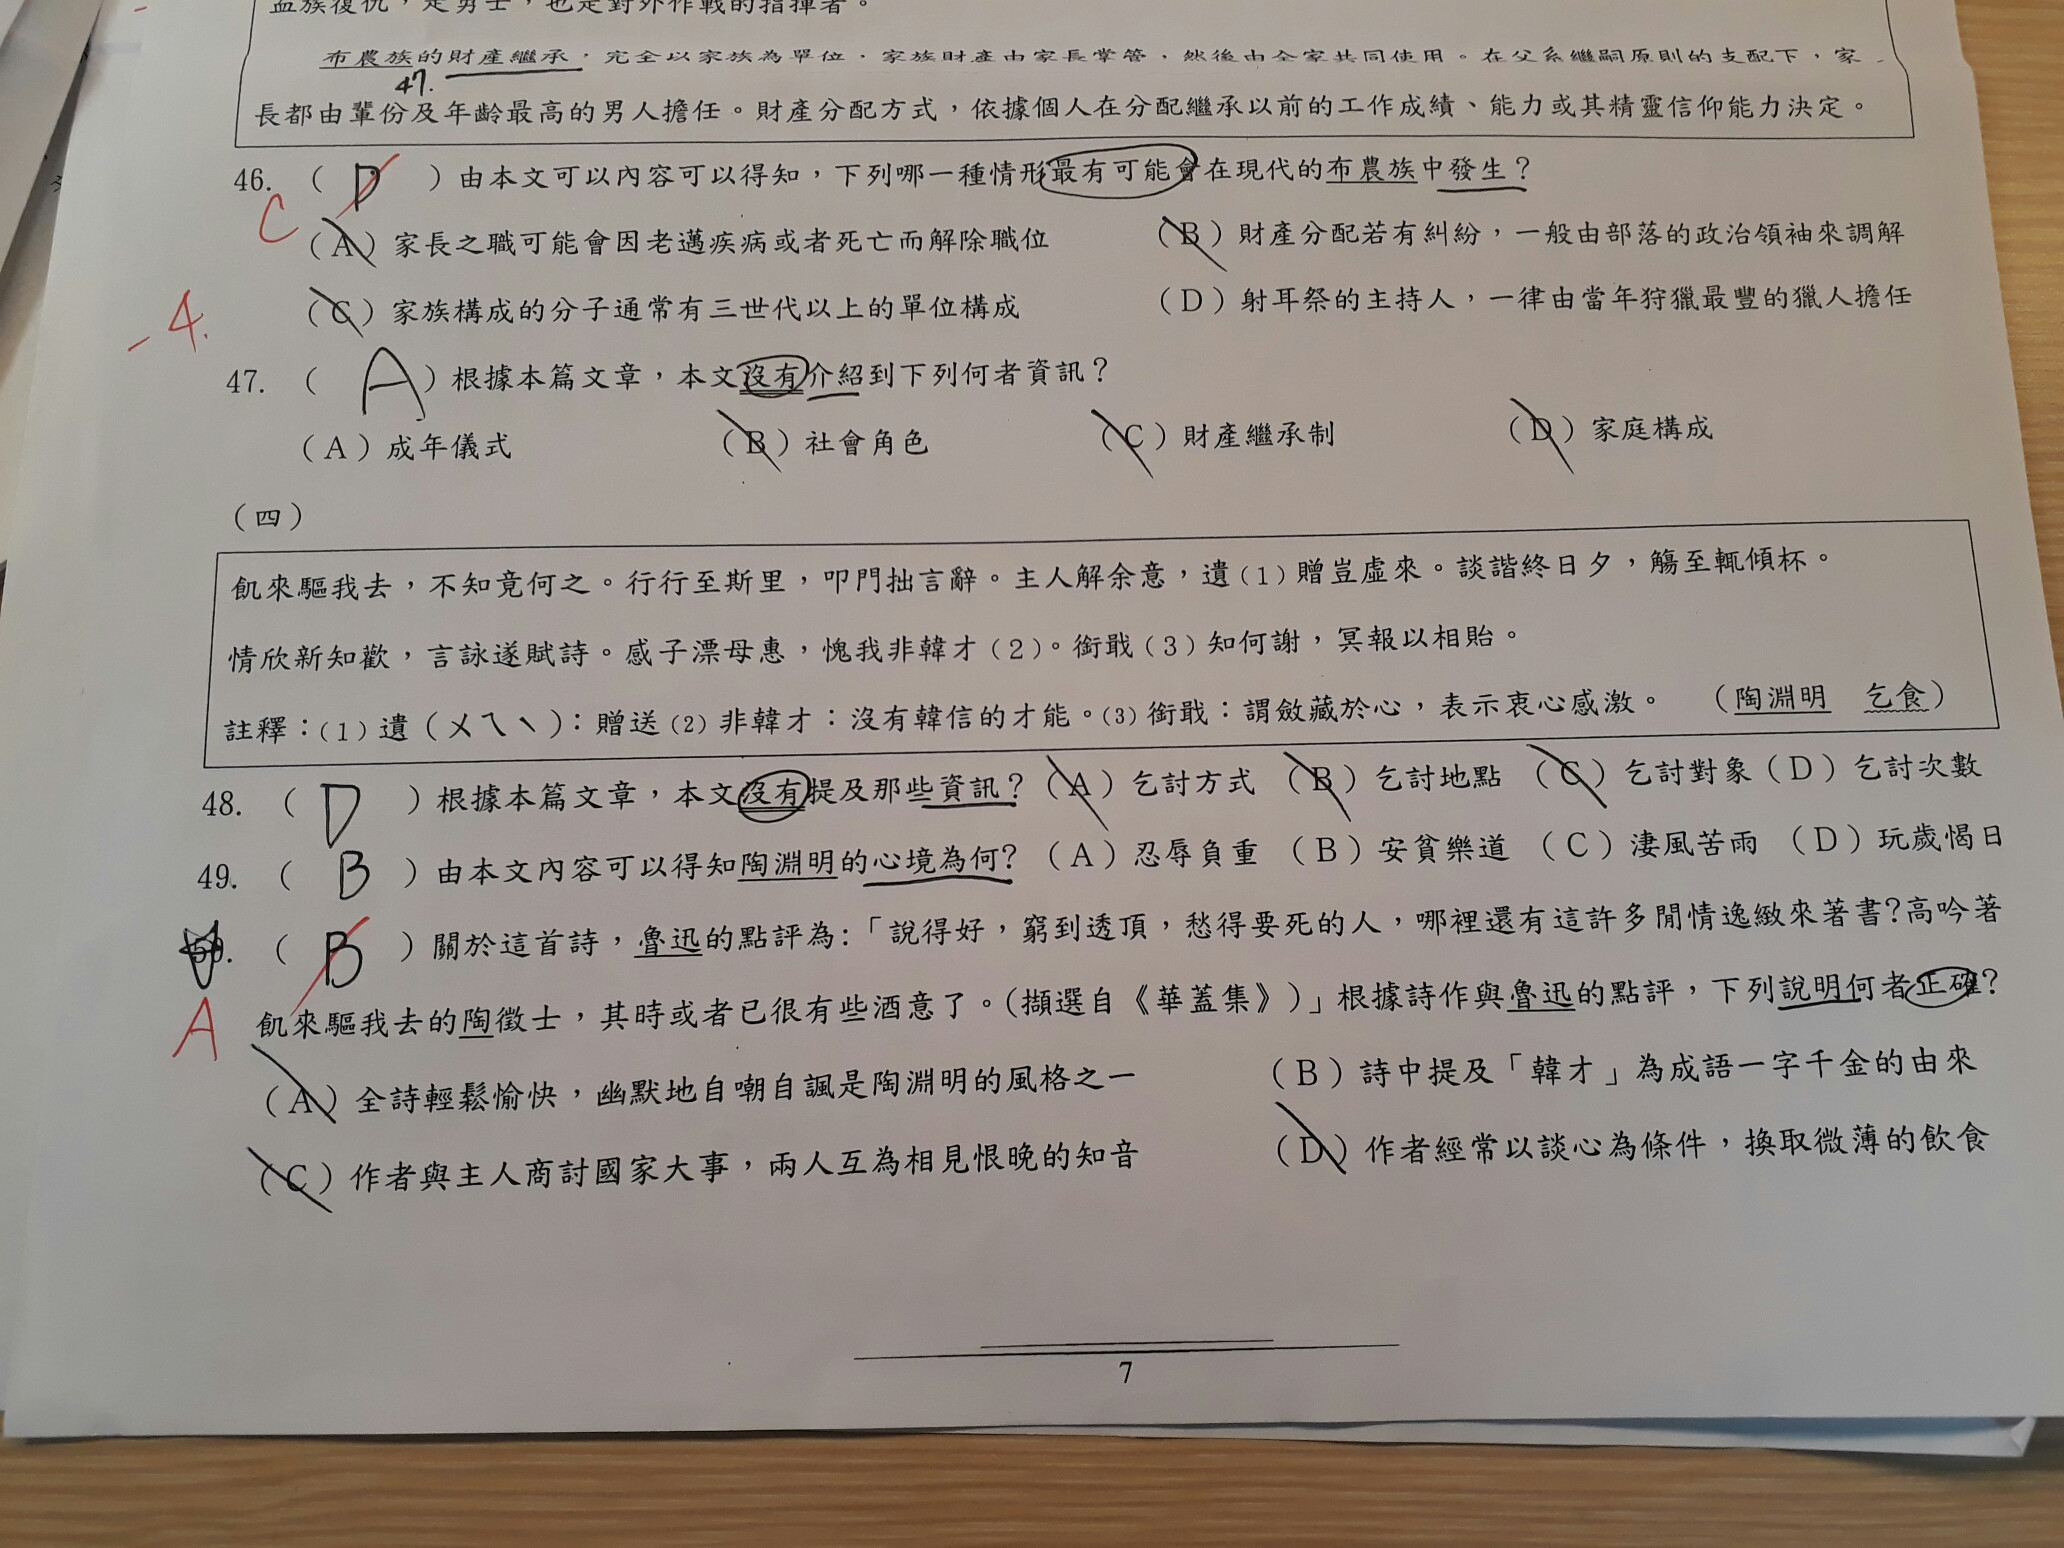 血族復仇，是勇士，也是對外作戰的指揮者。
布農族的財產繼承，完全以家族為單位，家族財產由家長掌管，然後由全家共同使用。在父系繼嗣原則的支配下，家
47.
長都由輩份及年齡最高的男人擔任。財產分配方式，依據個人在分配繼承以前的工作成績、能力或其精靈信仰能力決定。
46. （ D ）由本文可以內容可以得知，下列哪一種情形最有可能會在現代的布農族中發生？
C
（A）家長之職可能會因老邁疾病或者死亡而解除職位 （B）財產分配若有糾紛，一般由部落的政治領袖來調解
（C）家族構成的分子通常有三世代以上的單位構成 （D）射耳祭的主持人，一律由當年狩獵最豐的獵人擔任
-4.
47. （ A ）根據本篇文章，本文沒有介紹到下列何者資訊？
（A）成年儀式 （B）社會角色 （C）財產繼承制 （D）家庭構成
（四）
飢來驅我去，不知竟何之。行行至斯里，叩門拙言辭。主人解余意，遺(1)贈豈虛來。談諧終日夕，觴至輒傾杯。
情欣新知歡，言詠遂賦詩。感子漂母惠，愧我非韓才(2)。銜戢(3)知何謝，冥報以相貽。
註釋：(1)遺(ㄨㄟˋ)：贈送(2)非韓才：沒有韓信的才能。(3)銜戢：謂斂藏於心，表示衷心感激。 （陶淵明 乞食）
48. （ D ）根據本篇文章，本文沒有提及那些資訊？（A）乞討方式（B）乞討地點（C）乞討對象（D）乞討次數
49. （ B ）由本文內容可以得知陶淵明的心境為何?（A）忍辱負重（B）安貧樂道（C）淒風苦雨（D）玩歲愒日
50. （ B ）關於這首詩，魯迅的點評為:「說得好，窮到透頂，愁得要死的人，哪裡還有這許多閒情逸致來著書?高吟著
A
飢來驅我去的陶徵士，其時或者已很有些酒意了。(擷選自《華蓋集》)」根據詩作與魯迅的點評，下列說明何者正確?
（A）全詩輕鬆愉快，幽默地自嘲自諷是陶淵明的風格之一 （B）詩中提及「韓才」為成語一字千金的由來
（C）作者與主人商討國家大事，兩人互為相見恨晚的知音 （D）作者經常以談心為條件，換取微薄的飲食
7